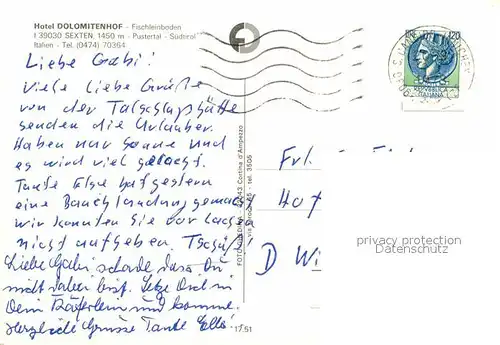 Hotel DOLOMITENHOF - Fischleinboden
I 39030 SEXTEN, 1450 m - Pustertal - Südtirol
Italien - Tel. (0474) 70364
Liebe Gabi!
Viele Liebe Grüße
von der Talschlußhütte
senden die Urlauber.
Haben nur Sonne und
es wird viel gelacht.
Tante Else hat gestern
eine Bauchlandung gemacht
wir konnten Sie vor Lachen
nicht aufheben. Tschüß!
Liebe Gabi, schade dass Du
nicht dabei bist. Setze Dich in
Dein und komme.
Herzliche Grüsse Tante Else
1751
43 Cortina d'Ampezzo
65 - tel. 3506
120
REPUBBLICA
ITALIANA
Frl.
Hof
D Wi
privacy protection
AnsichtskartenVersand.com